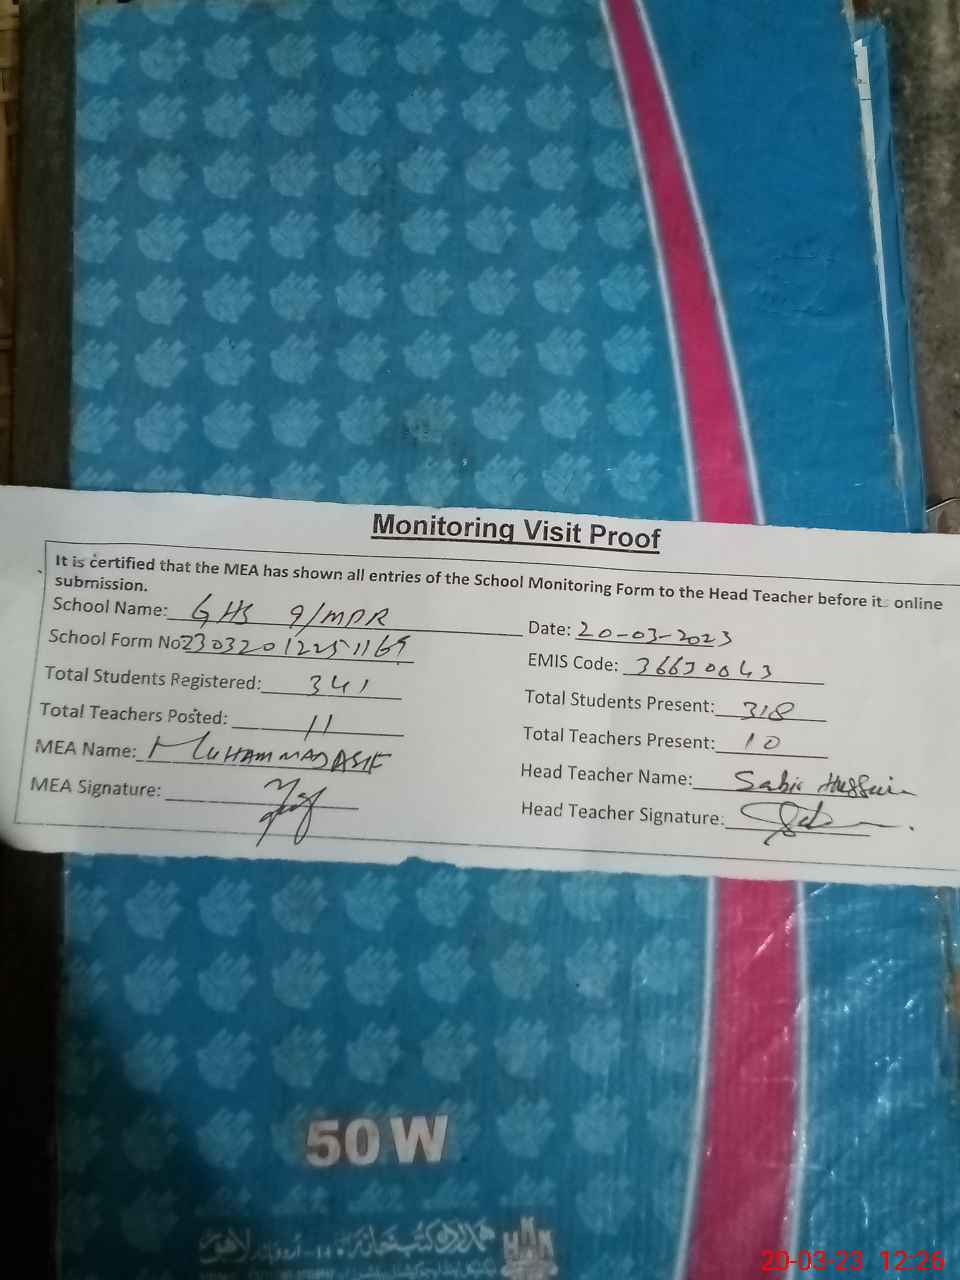 Monitoring Visit Proof
It is certified that the MEA has shown all entries of the School Monitoring Form to the Head Teacher before its online
submission.
School Name: GHS 9/MPR
Date: 20-03-2023
School Form No: 230320122511169
EMIS Code: 36630043
Total Students Registered: 341
Total Students Present: 318
Total Teachers Posted: 11
Total Teachers Present: 10
MEA Name: MUHAMMAD ASIF
Head Teacher Name: Sabir Hussain
MEA Signature:
Head Teacher Signature:
50 W
20-03-23 12:26